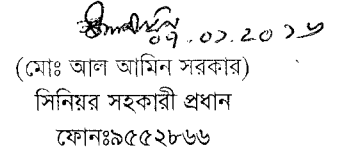 ০৭.০১.2০১৬
(মোঃ আল আমিন সরকার)
সিনিয়র সহকারী প্রধান
ফোনঃ৯৫৫২৮৬৬